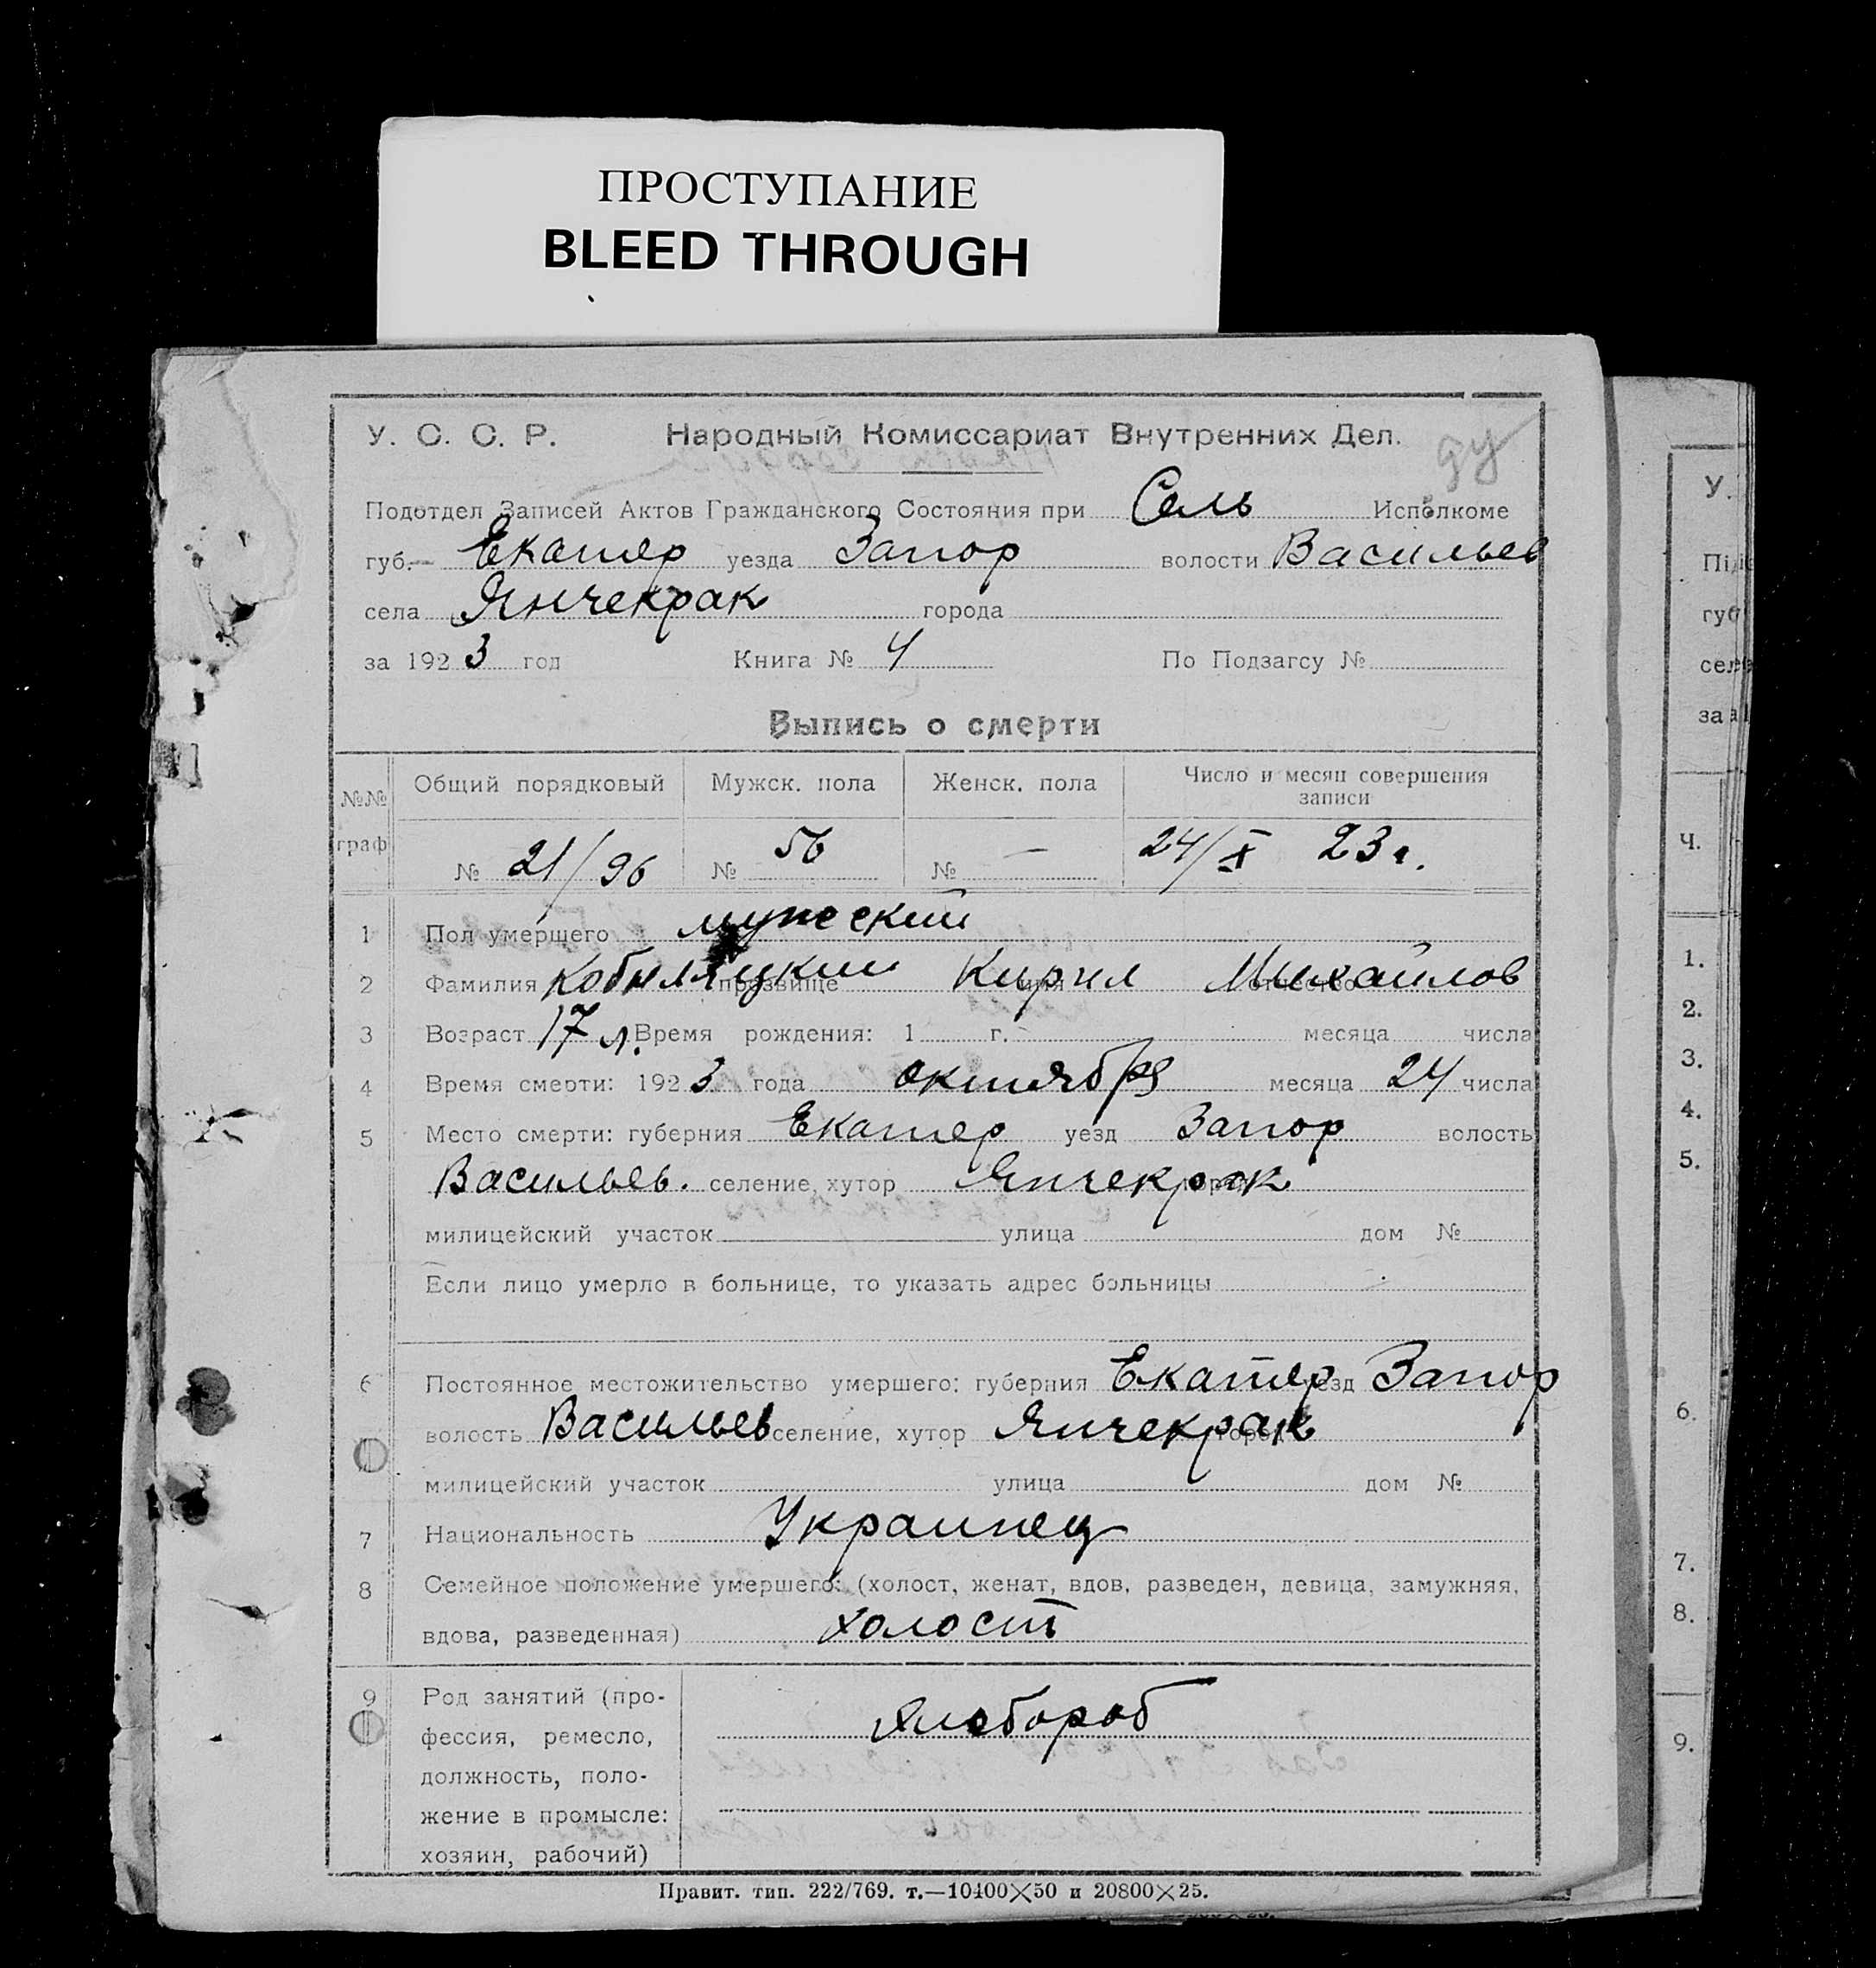 ПРОСТУПАНИЕ
BLEED THROUGH
У. С. С. Р. Народный Комиссариат Внутренних Дел.
Подотдел Записей Актов Гражданского Состояния при Сель Исполкоме
губ. Екатер уезда Запор волости Васильев
села Янчекрак города
за 1923 год Книга № 4 По Подзагсу №
Выпись о смерти
№№ граф Общий порядковый Мужск. пола Женск. пола Число и месяц совершения записи
№ 21/96 № 56 № — 24/X 23 г.
1 Пол умершего мужеский
2 Фамилия Кобиляцкий прозвище Кирил имя Михайлов отчество
3 Возраст 17 л. Время рождения: 1 г. месяца числа
4 Время смерти: 1923 года октября месяца 24 числа
5 Место смерти: губерния Екатер уезд Запор волость
Васильев. селение, хутор Янчекрак город
милицейский участок улица дом №
Если лицо умерло в больнице, то указать адрес больницы
6 Постоянное местожительство умершего: губерния Екатер уезд Запор
волость Васильев селение, хутор Янчекрак город
милицейский участок улица дом №
7 Национальность Украинец
8 Семейное положение умершего: (холост, женат, вдов, разведен, девица, замужняя,
вдова, разведенная) холост
9 Род занятий (про-
фессия, ремесло, хлебороб
должность, поло-
жение в промысле:
хозяин, рабочий)
Правит. тип. 222/769. т.—10400×50 и 20800×25.
У.
губ
за
Ч.
1.
2.
3.
4.
5.
6.
7.
8.
9.